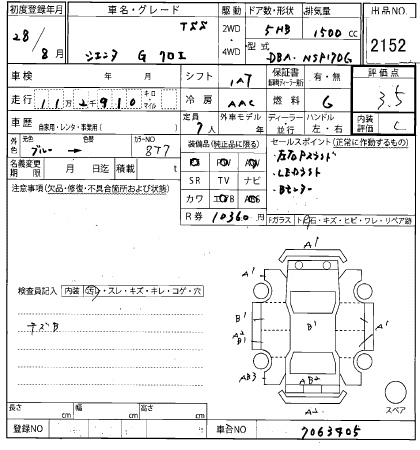 初度登録年月 車名・グレード 駆動 ドア数・形状 排気量 出品NO
TSS 2WD 5HB 1500 cc
28/8月 シエンタ G クロエ ・4WD 型式 DBA-NSP170G 2152
車検 年 月 シフト IAT 保証書 有・無 評価点
走行 11万2千910 キロ・マイル 冷房 AAC 燃料 G 3.5
車歴 自家用・レンタ・事業用( ) 定員 7人 外車モデル 年 ディーラー・並行 ハンドル 左・右 内装評価 C
外色 元色 ブルー → 色替 カラーNO 8T7
装備品(純正品に限る) セールスポイント(正常に作動するもの)
SR TV ナビ
名義変更期限 月 日迄 積載 t
・左右Pスライド
・LEDライト
・Bモニター
カワ
R券 10360円
注意事項(欠品・修復・不具合箇所および状態)
Fガラス トビ石・キズ・ヒビ・ワレ・リペア跡
A1
A1 A1
検査員記入 内装 汚・スレ・キズ・キレ・コゲ・穴
B1 B1
キズB
A2 B1 A1
AB3 AB2 A2
A2
スペア
長さ cm 幅 cm 高さ cm
登録NO 車台NO 7063405